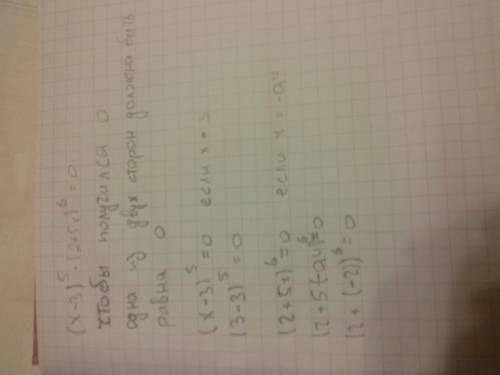 (x-3)⁵ · (2+5x)⁶ = 0
чтобы получился 0
одна из двух сторон должна быть
равна 0
(x-3)⁵ = 0 если x = 3
(3-3)⁵ = 0
(2+5x)⁶ = 0 если x = -0,4
(2+5(-0,4)⁶ = 0
(2+(-2))⁶ = 0